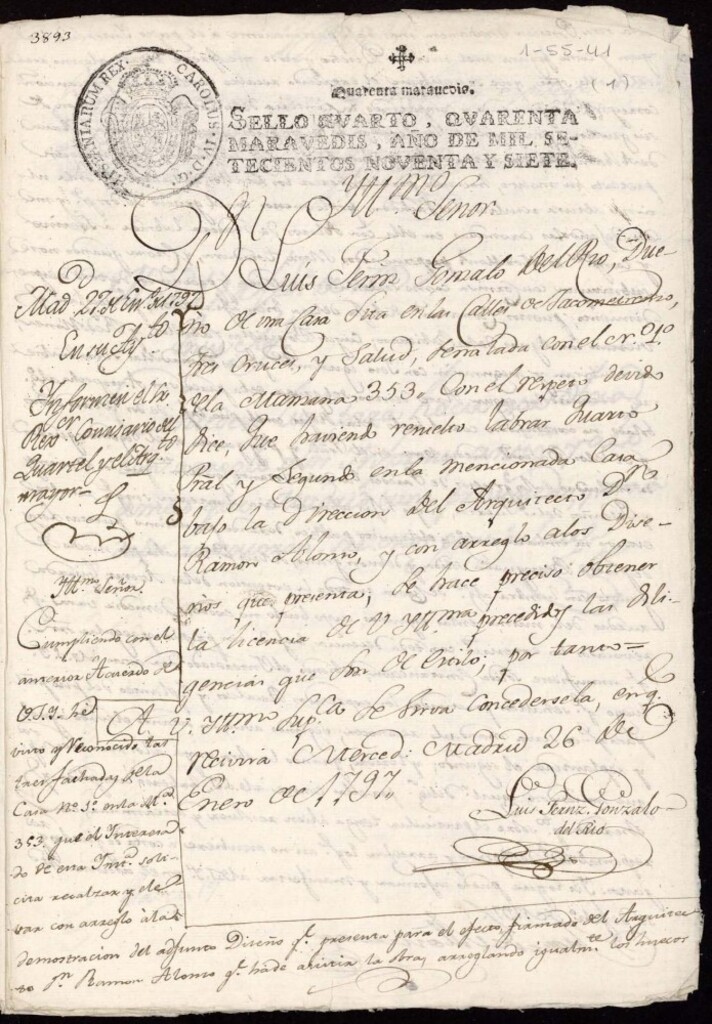 3893
1-55-41
(1)
HISPANIARUM REX. CAROLUS IV D.G.
Quarenta maravedis.
SELLO QVARTO, QVARENTA
MARAVEDIS, AÑO DE MIL SE-
TECIENTOS NOVENTA Y SIETE.
Yllmo
Señor
Dn Luis Fernz Gonzalo Del Rio, Due-
ño de una Casa Sita en las Calles de Jacometrenzo,
tres Cruces, y Salud, señalada con el nro. 1º
de la Manzana 353. Con el respeto devido
dice, que haviendo resuelto labrar Quarto
Pral y Segundo en la mencionada Casa
bajo la Direccion del Arquitecto Dn
Ramon Alonso, y con arreglo alos Dise-
ños que presenta, se hace preciso obtener
la licencia de V. Yllma precedidas las dili-
gencias que son de estilo; por tanto=
A V. Yllma Supca se sirva concedersela, en q.
recivirá Merced: Madrid 26 de
Enero de 1797.
Luis Fernz. Gonzalo
del Rio
Mad 27 de En.o de 1797
En su Ayto
Informen el Sr
Rexor Comisario del
Quartel y el Arqto
mayor-
Yllmo Señor.
Cumpliendo con el
anterior Acuerdo de
V.S.Y. he
visto y reconocido las
tres fachadas de la
Casa No. 1º en la Mª
353. que el Interesa-
do de esta Instª soli-
cita recalzar y ele-
var con arreglo a la
demostracion del adjunto Diseño qe. presenta para el efecto, firmado del Arquitec
to Dn. Ramon Alonso qe. ha de asistir la obra, arreglando igualmte los huecos